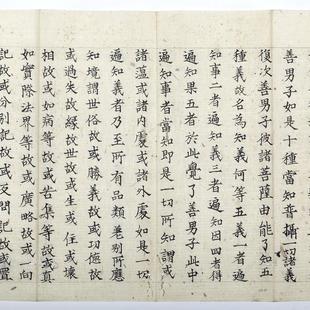 善男子如是十種當知普攝一切諸義
復次善男子彼諸菩薩由能了知五
種義故名為知義何等五義一者遍
知事二者遍知義三者遍知因四者得
遍知果五者於此覺了善男子此中
遍知事者當知即是一切所知謂或
諸蘊或諸內處或諸外處如是一切
遍知義者乃至所有品類差別所應
知境謂世俗故或勝義故或功德故
或過失故緣故世故或生或住或壞
相故或如病等故或苦集等故或真
如實際法界等故或廣略故或一向
記故或分別記故或反問記故或置